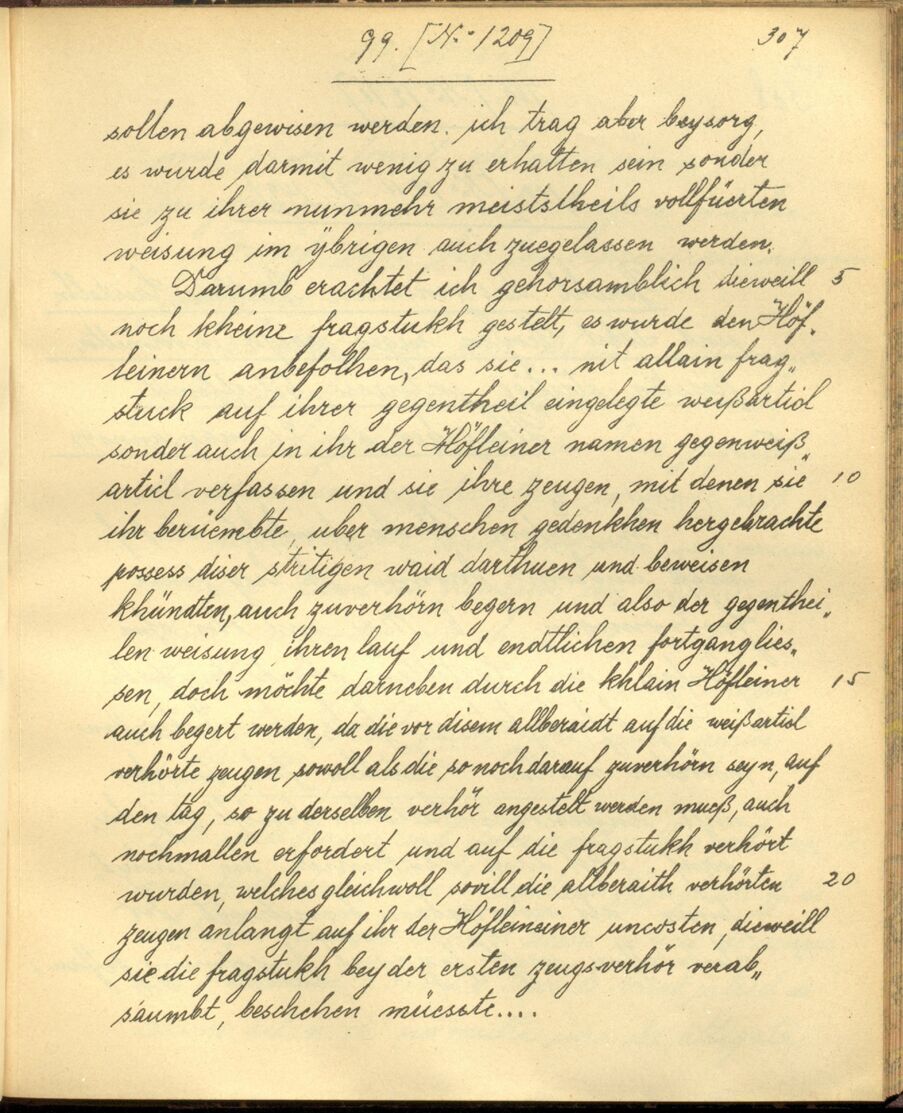 99. [N.° 1209]
307
sollen abgewisen werden. ich trag aber beysorg,
es wurde darmit wenig zu erhalten sein sonder
sie zu ihrer nunmehr meiststheils vollfüerten
weisung im ÿbrigen auch zuegelassen werden.
Darumb erachtet ich gehorsamblich dieweill 5
noch kheine fragstukh gestelt, es wurde den Höf„
leinern anbefolhen, das sie... nit allain frag„
stuck auf ihrer gegentheil eingelegte weißarticl
sonder auch in ihr der Höfleiner namen gegenweiß„
articl verfassen und sie ihre zeugen, mit denen sie 10
ihr berüembte, uber menschen gedenkhen hergebrachte
possess diser stritigen waid darthuen und beweisen
khündten, auch zuverhörn begern und also der gegenthei„
len weisung ihren lauf und endtlichen fortgang lies„
sen, doch möchte darneben durch die khlain Höfleiner 15
auch begert werden, da die vor disem allberaidt auf die weißarticl
verhörte zeugen sowoll als die so noch darauf zuverhörn seyn, auf
den tag, so zu derselben verhör angestelt werden mueß, auch
nochmallen erfordert und auf die fragstukh verhört
wurden, welches gleichwoll sovill die allberaith verhörten 20
zeugen anlangt auf ihr der Höfleineiner uncosten, dieweill
sie die fragstukh bey der ersten zeugsverhör verab„
säumbt, beschehen müesste....